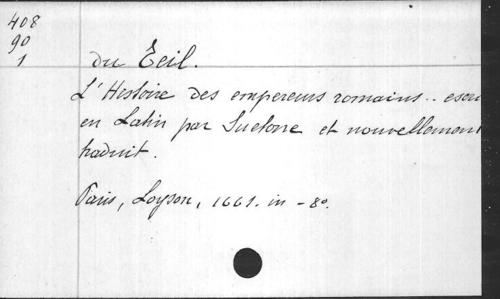 408
90
1
du Teil.
L'Histoire des empereurs romains .. escri
en Latin par Suetone et nouvellement
traduit.
Paris, Loyson, 1661. in-8°.